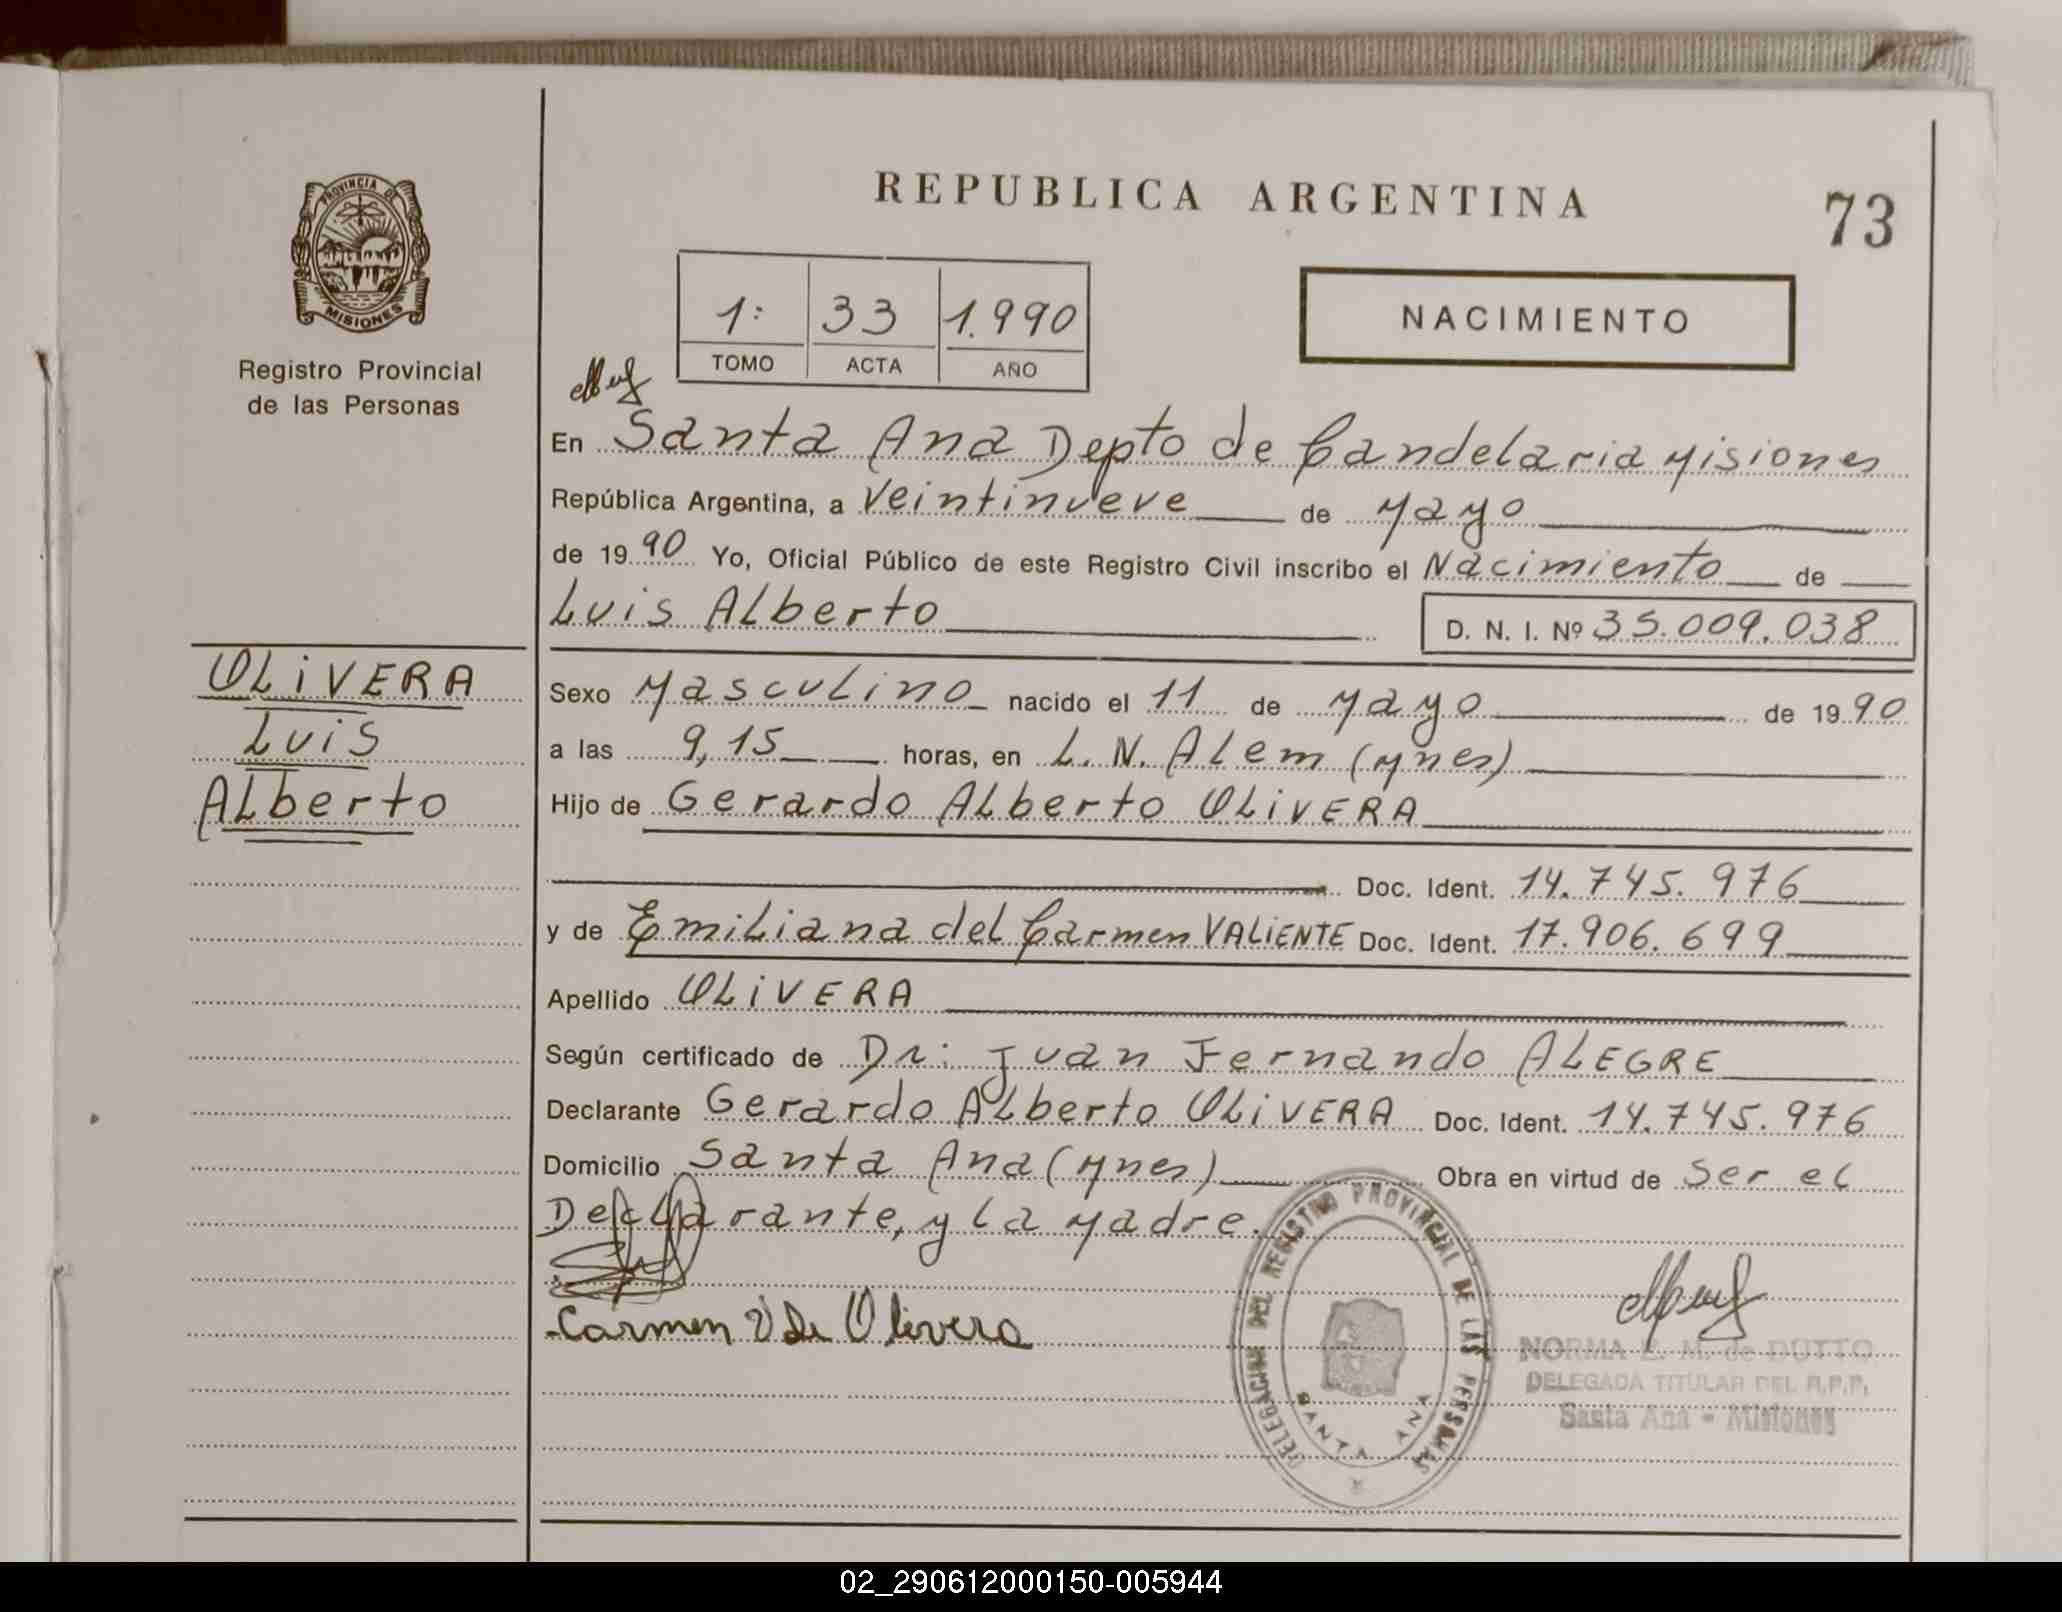 REPUBLICA ARGENTINA
73
PROVINCIA DE
MISIONES
Registro Provincial
de las Personas
1: 33 1.990
TOMO ACTA AÑO
NACIMIENTO
En Santa Ana Depto de Candelaria Misiones
República Argentina, a Veintinueve de Mayo
de 1990 Yo, Oficial Público de este Registro Civil inscribo el Nacimiento de
Luis Alberto D. N. I. Nº 35.009.038
OLiVERA
Luis
Alberto
Sexo Masculino nacido el 11 de Mayo de 1990
a las 9,15 horas, en L. N. Alem (Mnes)
Hijo de Gerardo Alberto OLiVERA
Doc. Ident. 14.745.976
y de Emiliana del Carmen VALiENTE Doc. Ident. 17.906.699
Apellido OLiVERA
Según certificado de Dr: Juan Fernando ALEGRE
Declarante Gerardo Alberto OLiVERA Doc. Ident. 14.745.976
Domicilio Santa Ana (Mnes) Obra en virtud de Ser el
Declarante, y la Madre.
Carmen V de Olivera
DELEGACION DEL REGISTRO PROVINCIAL DE LAS PERSONAS
SANTA ANA
NORMA E. M. de DUTTO
DELEGADA TITULAR DEL R.P.P.
Santa Ana - Misiones
02_290612000150-005944